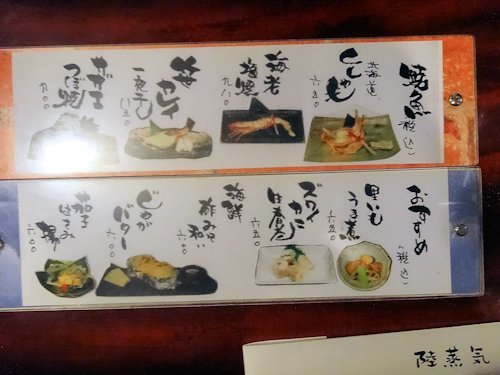 焼魚(税込)
北海道
ししゃも
六五〇
海老
塩焼
九八〇
笹
カレイ
一夜干し
八五〇
サザエ
つぼ焼
おすすめ
(税込)
里いも
うま煮
六五〇
ズワイ
カニ
六五〇
海鮮
酢みそ和い
六〇〇
じゃが
バター
六〇〇
茄子
はさみ
揚
六〇〇
陸蒸気